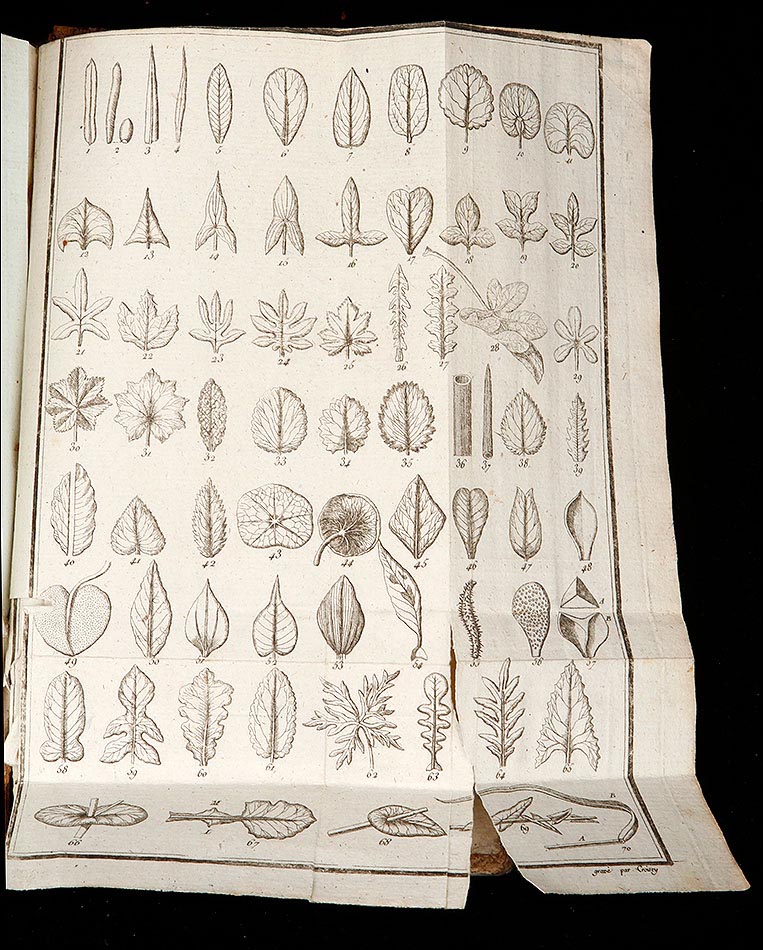 1 2 3 4 5 6 7 8 9 10 11
12 13 14 15 16 17 18 19 20
21 22 23 24 25 26 27 28 29
30 31 32 33 34 35 36 37 38 39
40 41 42 43 44 45 46 47 48
49 50 51 52 53 54 55 56 57 A B
58 59 60 61 62 63 64 65
66 67 M L 68 69 70 A B
gravé par